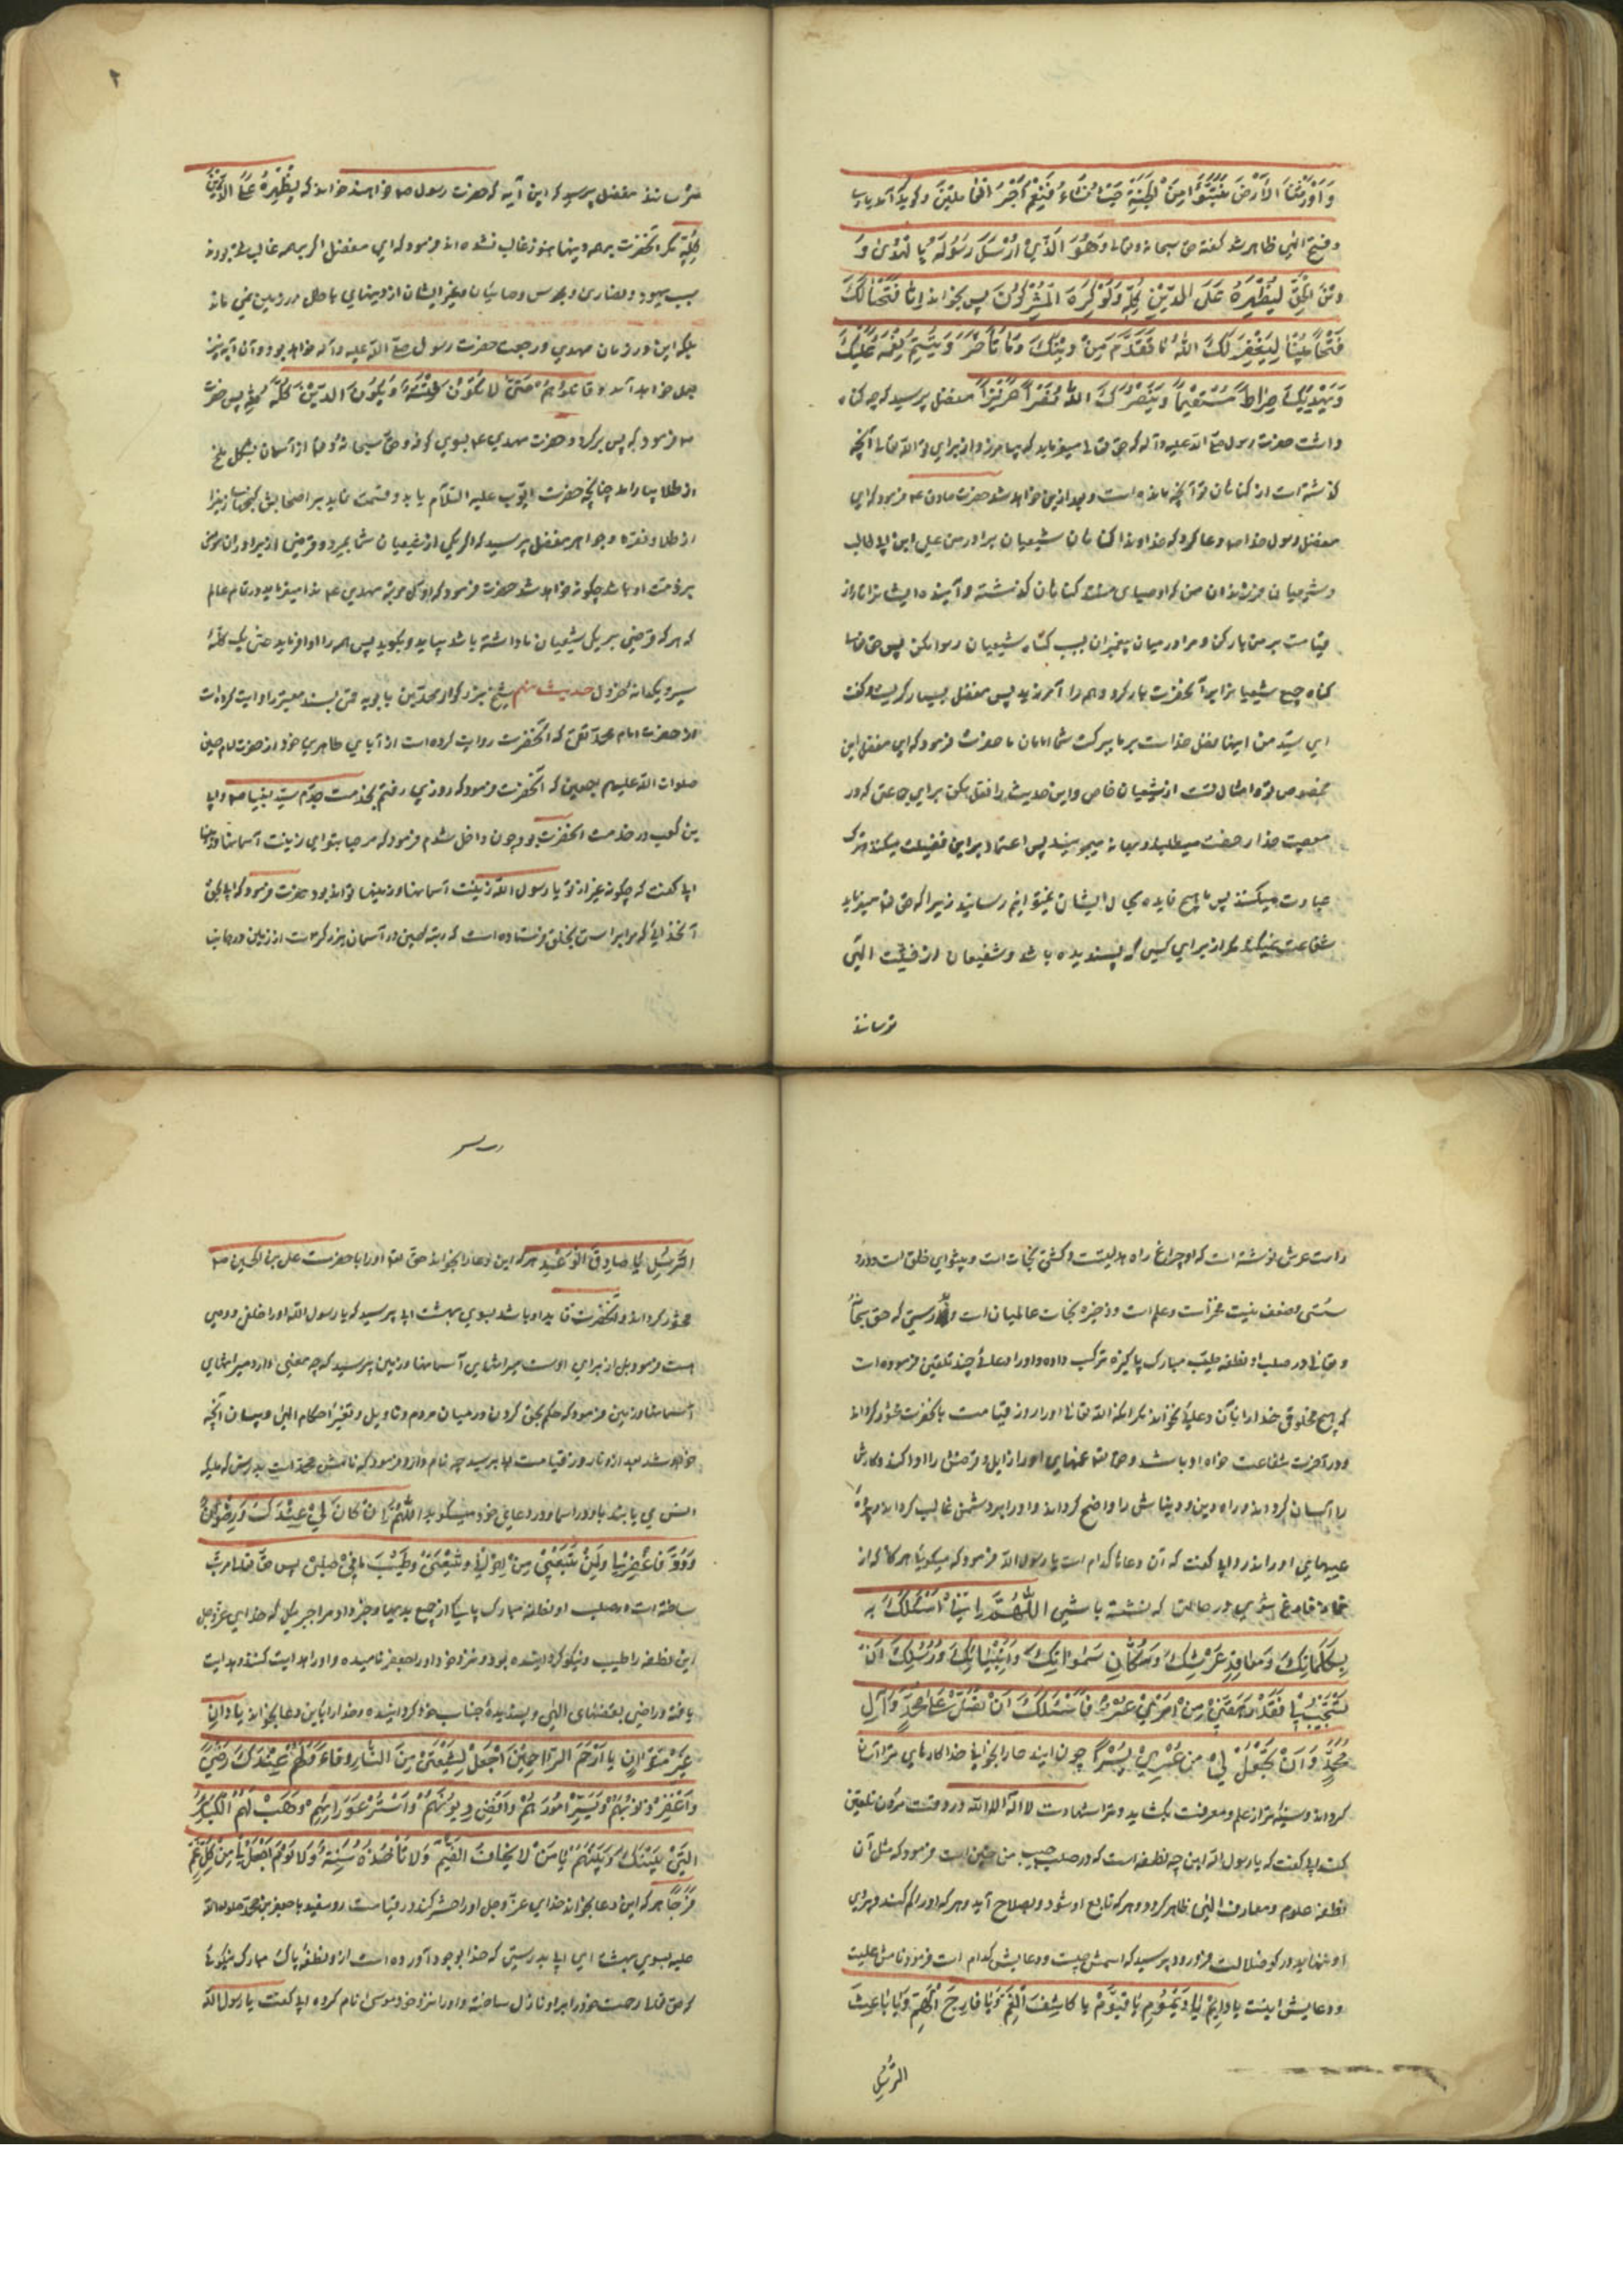 وَاَوْرَثَنَا الْاَرْضَ نَتَبَوَّءُ مِنَ الْجَنَّةِ حَيْثُ نَشَاءُ فَنِعْمَ اَجْرُ الْعَامِلِينَ و گوید
و فتح الهی ظاهر شد گفته حق سبحانه وتعالی وَهُوَ الَّذِي اَرْسَلَ رَسُولَهُ بِالْهُدىٰ وَ
دِيْنَ الْحَقِّ لِيُظْهِرَهُ عَلَى الدِّيْنِ كُلِّهِ وَلَوْ كَرِهَ الْمُشْرِكُونَ پس بخواند اِنَّا فَتَحْنَا لَكَ
فَتْحًا مُبِينًا لِيَغْفِرَ لَكَ اللّٰهُ مَا تَقَدَّمَ مِنْ ذَنْبِكَ وَمَا تَأَخَّرَ وَيُتِمَّ نِعْمَتَهُ عَلَيْكَ
وَيَهْدِيَكَ صِرَاطًا مُسْتَقِيمًا وَيَنْصُرَكَ اللّٰهُ نَصْرًا عَزِيزًا مفضل پرسید که چه گناه
داشت حضرت رسول صلی الله علیه وآله که حق تعالی میفرماید که بیامرزد از برای تو الله تعالی آنچه
گذشته است از گناهان تو آنچه مانده است و بعد ازین خواهد شد حضرت صادق ع فرمود که ای
مفضل رسول خدا ص دعا کرد که خداوندا گناهان شیعیان برادر من علی ابن ابی طالب
و شیعیان فرزندان من که اوصیای منند گناهان گذشته و آینده ایشانرا تا روز
قیامت بر من بار کن و مرا در میان پیغمبران بسبب گناه شیعیان رسوا مکن پس حق تعالی
گناه جمیع شیعیانرا بر آنحضرت بار کرد و همه را آمرزید پس مفضل بسیار گریست و گفت
ای سید من اینها فضل خداست بر ما ببرکت شما امامان ما حضرت فرمود که ای مفضل این
مخصوص تو و امثال تست از شیعیان خاص و این حدیث را نقل مکن برای جماعتی که در
معصیت خدا رخصت میطلبند و بهانه میجویند پس اعتماد بر این فضیلت میکنند و ترک
عبادت میکنند پس ما هیچ فایده بحال ایشان نمیتوانیم رسانید زیرا که حق تع میفرماید
شفاعت نمیکنند مگر از برای کسی که پسندیده باشد و شفیعان از خشیت الهی
ترسانند
ترسانند مفضل پرسید که این آیه که حضرت رسول ص خواهند خواند که لِيُظْهِرَهُ عَلَى الدِّيْنِ
كُلِّهِ مگر آنحضرت بر همه دینها هنوز غالب نشده اند فرمود که ای مفضل اگر بر همه غالب شده بودند
سبب یهود و نصاری و مجوس و صابیان و غیر ایشان از دینهای باطل در زمین نمی ماند
بلکه این در زمان مهدی و رجعت حضرت رسول صلی الله علیه وآله خواهد بود و آن آیه نیز
بعمل خواهد آمد وَقَاتِلُوهُمْ حَتَّىٰ لَا تَكُونَ فِتْنَةٌ وَيَكُونَ الدِّيْنُ كُلُّهُ لِلّٰهِ پس حضرت
ص فرمود که پس برگردد حضرت مهدی ع بسوی کوفه و حق سبحانه وتعالی از آسمان بشکل ملخ
از طلا بباراند چنانچه حضرت ایوب علیه السلام
از طلا و نقره و جواهر مفضل پرسید که اگر یکی از شیعیان شما بمیرد و قرضی از برادران مؤمن
بر ذمت او باشد چگونه خواهد شد حضرت فرمود که اول مرتبه مهدی ع ندا میفرماید در تمام عالم
که هر که قرضی بر یکی شیعیان ما داشته باشد بیاید و بگوید پس همه را ادا فرماید حتی یک کلّهٔ
سیر و یکدانه خردل حدیث نهم شیخ بزرگوار محمد بن بابویه قمی بسند معتبر روایت کرده است
از حضرت امام محمد تقی که آنحضرت روایت کرده است از آبای طاهرین خود از حضرت امام حسین
صلوات الله علیهم اجمعین که آنحضرت فرمود که روزی رفتم بخدمت جدم سید انبیا ص و ابی
بن کعب در خدمت آنحضرت بود چون داخل شدم فرمود که مرحبا بتو ای زینت آسمانها و زمینها
ابی گفت که چگونه غیر از تو یا رسول الله زینت آسمانها و زمینها تواند بود حضرت فرمود که ای ابی بحق
آنخدائی که مرا براستی بخلق فرستاده است که رتبه حسین در آسمان بزرگتر است از زمین و در جانب
راست عرش نوشته است که او چراغ راه هدایتست و کشتی نجات است و پیشوای خلق است و در او
سستی و ضعف نیست فخر است و علم است و ذخیره نجات عالمیان است و بدرستی که حق سبحانه
وتعالی در صلب او نطفه طیب مبارک پاکیزه ترکیب داده و او را دعائی چند تلقین فرموده است
که هیچ مخلوقی خدا را بآن دعاها نخواند مگر آنکه الله تعالی او را روز قیامت با آنحضرت محشور گرداند
و در آخرت شفاعت خواه او باشد و حق تع غمهای او را زایل و قرضش را ادا کند و کارش
را آسان گرداند و راه دین و دینایش را واضح گرداند و او را بر دشمن غالب گرداند و پرده
عیبهای او را ندرد ابی گفت که آن دعاها کدام است یا رسول الله فرمود که میگوئی هرگاه که از
نماز فارغ شوی در حالتی که نشسته باشی اَللّٰهُمَّ اِنِّي اَسْئَلُكَ بِ
بِكَلِمَاتِكَ وَمَعَاقِدِ عَرْشِكَ وَسُكَّانِ سَمٰوَاتِكَ وَاَنْبِيَائِكَ وَرُسُلِكَ اَنْ
تَسْتَجِيْبَ لِي فَقَدْ رَهَقَنِيْ مِنْ اَمْرِيْ عُسْرٌ فَاَسْئَلُكَ اَنْ تُصَلِّيَ عَلٰى مُحَمَّدٍ وَآلِ
مُحَمَّدٍ وَاَنْ تَجْعَلَ لِيْ مِنْ عُسْرِيْ يُسْرًا چون این دعا را بخوانی خدا کارهای ترا آسان
گرداند و سینه ترا از علم و معرفت بگشاید و ترا شهادت لا اله الا الله در وقت مردن تلقین
کند ابی گفت که یا رسول الله این چه نطفه است که در صلب حبیب من حسین است فرمود که مثل آن
نطفه علوم و معارف الهی ظاهر گردد و هر که تابع او شود بصلاح آید و هر که او را گم کند و پیروی
او ننماید در کو ضلالت فرو رود پرسید که اسمش چیست و دعایش کدام است فرمود نامش علیست
و دعایش اینست یا دَائِمُ یا دَيْمُومُ یا حَيُّ یا قَيُّومُ یا كَاشِفَ الْغَمِّ وَيَا فَارِجَ الْهَمِّ وَيَا بَاعِثَ
الرُّسُلِ
الرُّسُلِ یا صَادِقَ الْوَعْدِ هر که این دعا را بخواند حق تع او را با حضرت علی بن الحسین ص
محشور گرداند و آنحضرت قاید او باشد بسوی بهشت ابی پرسید که یا رسول الله او را خلفی و وصی
هست فرمود بلی از برای اوست میراثهای آسمانها و زمین پرسید که چه معنی دارد میراثهای
آسمانها و زمین فرمود که حکم بحق کردن در میان مردم و تاویل و تفسیر احکام الهی و بیان آنچه
خواهد شد بعد از او تا روز قیامت ابی پرسید چه نام دارد فرمود که نامش محمد است بدرستی که ملائکه
انس می یابند باو در آسمان و در دعای خود میگوید اَللّٰهُمَّ اِنْ كَانَ لِيْ عِنْدَكَ رِضْوَانٌ
وَوُدٌّ فَاغْفِرْ لِي وَلِمَنْ تَبِعَنِي مِنْ اِخْوَانِي وَشِيْعَتِي وَطَيِّبْ مَا فِيْ صُلْبِيْ پس حق تعالی مرتب
ساخته است در صلب او نطفه مبارک پاکی از جمیع بدیها و خبر داد مرا جبرئیل که خدای عز وجل
این نطفه را طیب و نیکو گردانیده بود و نزد خود او را جعفر نامیده و او را هدایت کننده و هدایت
یافته و راضی بقضاهای الهی و پسندیده جناب خود گردانیده و خدا را باین دعا بخواند یا دَانٍ
غَيْرَ مُتَوَانٍ یا اَرْحَمَ الرَّاحِمِيْنَ اجْعَلْ لِشِيْعَتِيْ مِنَ النَّارِ وِقَاءً وَلَهُمْ عِنْدَكَ رِضًى
وَاغْفِرْ ذُنُوبَهُمْ وَيَسِّرْ اُمُوْرَهُمْ وَاقْضِ دُيُوْنَهُمْ وَاسْتُرْ عَوْرَاتِهِمْ وَهَبْ لَهُمُ الْكَبَائِرَ
الَّتِيْ بَيْنَكَ وَبَيْنَهُمْ یا مَنْ لَا يَخَافُ الضَّيْمَ وَلَا تَأْخُذُهُ سِنَةٌ وَلَا نَوْمٌ اجْعَلْ لِي مِنْ كُلِّ غَمٍّ
فَرَجًا هر که این دعا بخواند خدای عز وجل او را حشر کند در قیامت رو سفید با جعفر بن محمد صلوات الله
علیه بسوی بهشت ای ابی بدرستی که خدا بوجود آورده است از و نطفه پاک مبارک نیکوئی
که حق تعالی رحمت خود را بر او نازل ساخته و او را نزد خود موسی نام کرده ابی گفت یا رسول الله